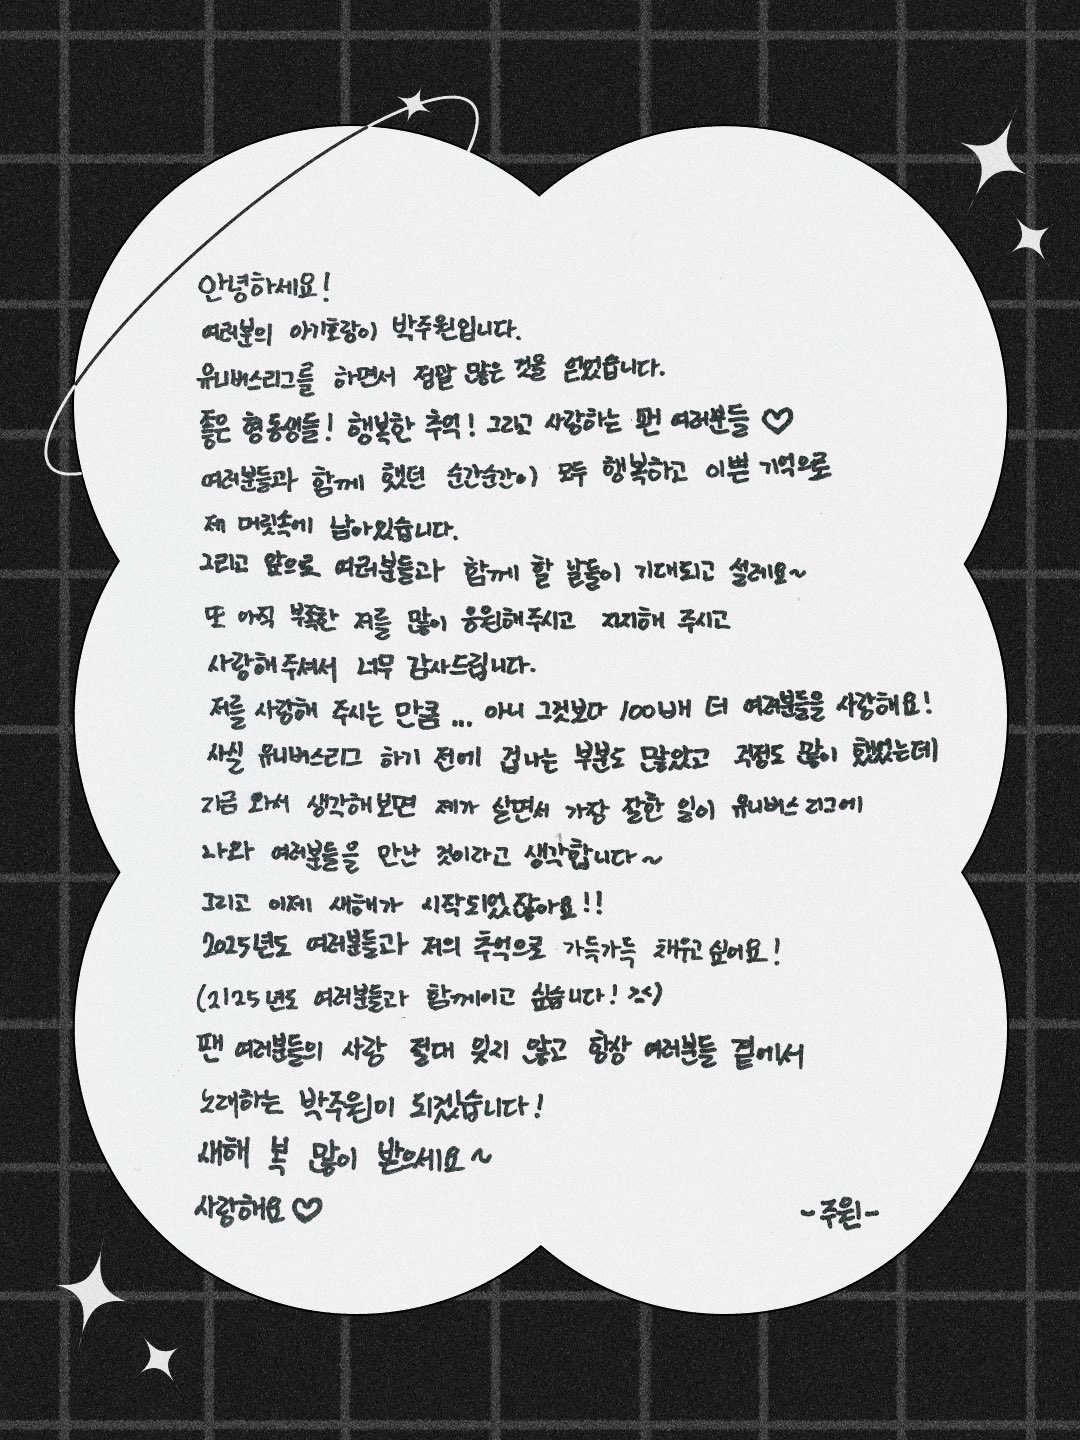 안녕하세요!
여러분의 아기호랑이 박주원입니다.
유니버스리그를 하면서 정말 많은 것을 얻었습니다.
좋은 형동생들! 행복한 추억! 그리고 사랑하는 팬 여러분들 ♡
여러분들과 함께 했던 순간순간이 모두 행복하고 이쁜 기억으로
제 머릿속에 남아있습니다.
그리고 앞으로 여러분들과 함께 할 날들이 기대되고 설레요~
또 아직 부족한 저를 많이 응원해주시고 지지해 주시고
사랑해주셔서 너무 감사드립니다.
저를 사랑해 주시는 만큼 ... 아니 그것보다 100배 더 여러분들을 사랑해요!
사실 유니버스리그 하기 전에 겁나는 부분도 많았고 걱정도 많이 했었는데
지금 와서 생각해보면 제가 살면서 가장 잘한 일이 유니버스리그에
나와 여러분들을 만난 것이라고 생각합니다~
그리고 이제 새해가 시작되었잖아요!!
2025년도 여러분들과 저의 추억으로 가득가득 채우고싶어요!
(2125년도 여러분들과 함께이고 싶습니다! >.<)
팬 여러분들의 사랑 절대 잊지 않고 항상 여러분들 곁에서
노래하는 박주원이 되겠습니다!
새해 복 많이 받으세요~
사랑해요♡
-주원-